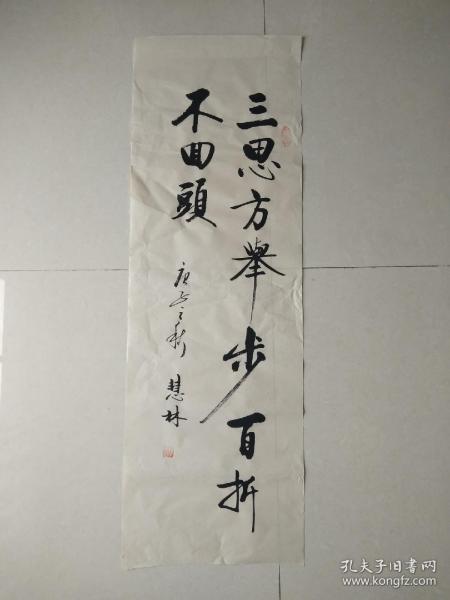 三思方舉步百折
不回頭
慧林
孔夫子旧书网
www.kongfz.com